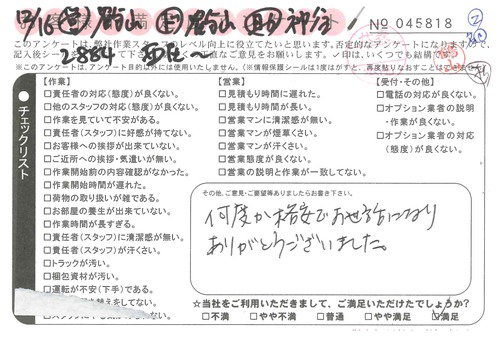 № 045818
このアンケートは、弊社作業スタッフのレベル向上に役立てたいと思います。否定的なアンケートになりますが、
※このアンケートは、アンケート目的以外には使用いたしません。
2884
チェックリスト
【作業】
□責任者の対応(態度)が良くない。
□他のスタッフの対応(態度)が良くない。
□作業を見ていて不安がある。
□責任者(スタッフ)に好感が持てない。
□お客様への挨拶が出来ていない。
□ご近所への挨拶・気遣いが無い。
□作業開始前の内容確認がなかった。
□作業開始時間が遅れた。
□荷物の取り扱いが雑である。
□お部屋の養生が出来ていない。
□作業時間が長すぎる。
□責任者(スタッフ)に清潔感が無い。
□責任者(スタッフ)が汗くさい。
□トラックが汚い。
□梱包資材が汚い。
□運転が不安(下手)である。
【営業】
□見積もり時間に遅れた。
□見積もり時間が長い。
□営業マンに清潔感が無い。
□営業マンが煙草くさい。
□営業マンが汗くさい。
□営業態度が良くない。
□営業の説明と作業が一致してない。
【受付・その他】
□電話の対応が良くない。
□オプション業者の説明
・作業が良くない。
□オプション業者の対応
(態度)が良くない。
その他、ご意見・ご要望等ありましたらお書き下さい。
何度か格安でお世話になり
ありがとうございました。
☆当社をご利用いただきまして、ご満足いただけたでしょうか?
□不満 □やや不満 □普通 □やや満足 □満足